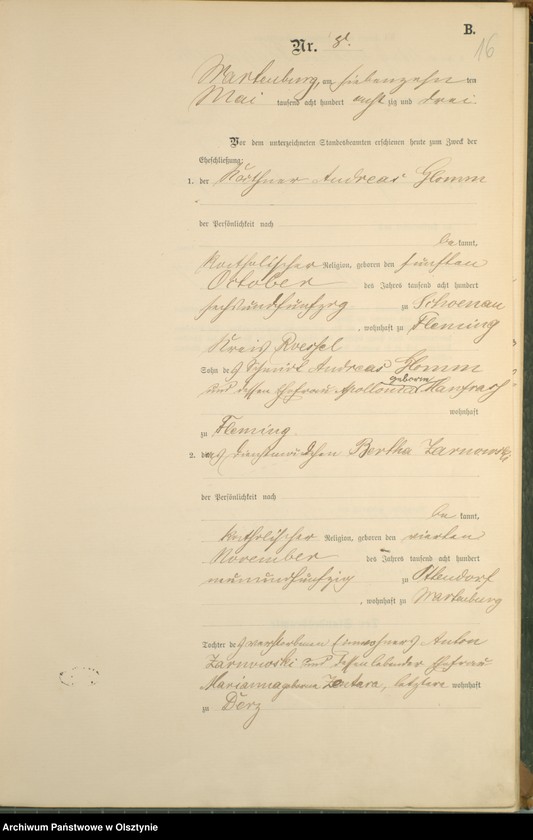 B.
16
Nr.
Wartenburg, am siebenzehn ten
Mai tausend acht hundert acht zig und drei.
Vor dem unterzeichneten Standesbeamten erschienen heute zum Zweck der
Eheschließung:
1. der Käthner Andreas Glomm
der Persönlichkeit nach
be kannt,
katholischer Religion, geboren den fünften
October des Jahres tausend acht hundert
sechsundfünfzig zu Schoenau
, wohnhaft zu Fleming
Kreis Roessel
Sohn des Schmidt Andreas Glomm
geborne
und dessen Ehefrau Apollonia
wohnhaft
zu Fleming.
2. das Dienstmädchen Bertha Zarnowski
der Persönlichkeit nach
be kannt,
katholischer Religion, geboren den vierten
November des Jahres tausend acht hundert
neunundfünfzig zu Ottendorf
, wohnhaft zu Wartenburg
Tochter des verstorbenen Einwohners Anton
Zarnowski und dessen lebender Ehefrau
Marianna geborne Zentara, letztere wohnhaft
zu Derz
Archiwum Państwowe w Olsztynie